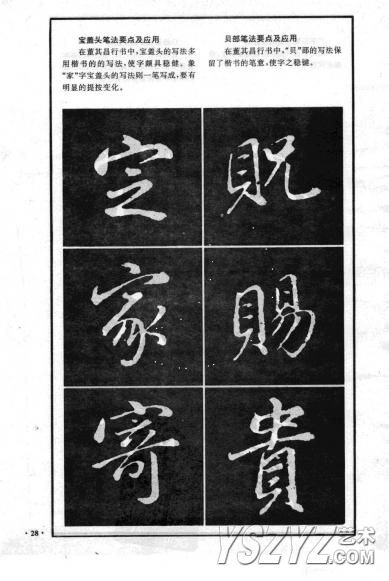 宝盖头笔法要点及应用
在董其昌行书中,宝盖头的写法多
用楷书的的写法,使字颇具稳健。象
“家”字宝盖头的写法则一笔写成,要有
明显的提按变化。
贝部笔法要点及应用
在董其昌行书中,“贝”部的写法保
留了楷书的笔意,使字之稳键。
定
家
寄
貺
賜
貴
·28·
YSZYZ艺术
.com